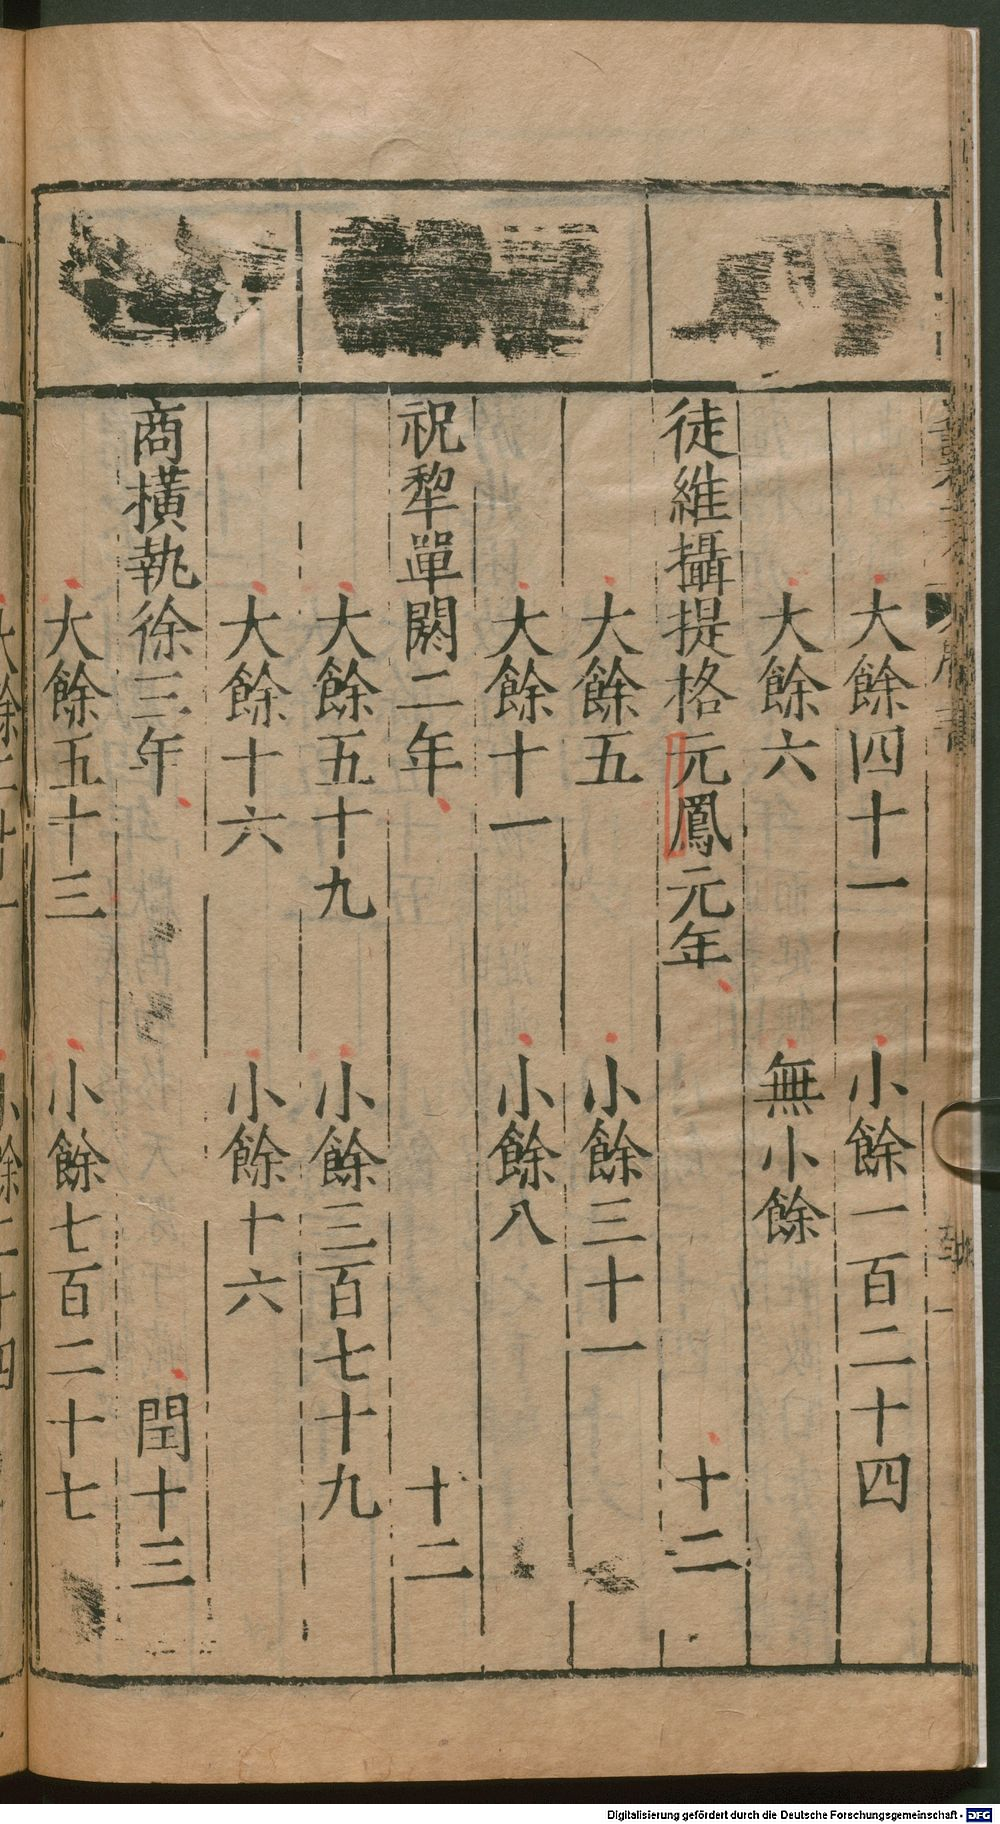 大餘四十一　小餘一百二十四
大餘六　無小餘
徒維攝提格元鳳元年　十二
大餘五　小餘三十一
大餘十一　小餘八
祝犂單閼二年　十二
大餘五十九　小餘三百七十九
大餘十六　小餘十六
商橫執徐三年　閏十三
大餘五十三　小餘七百二十七
Digitalisierung gefördert durch die Deutsche Forschungsgemeinschaft - DFG